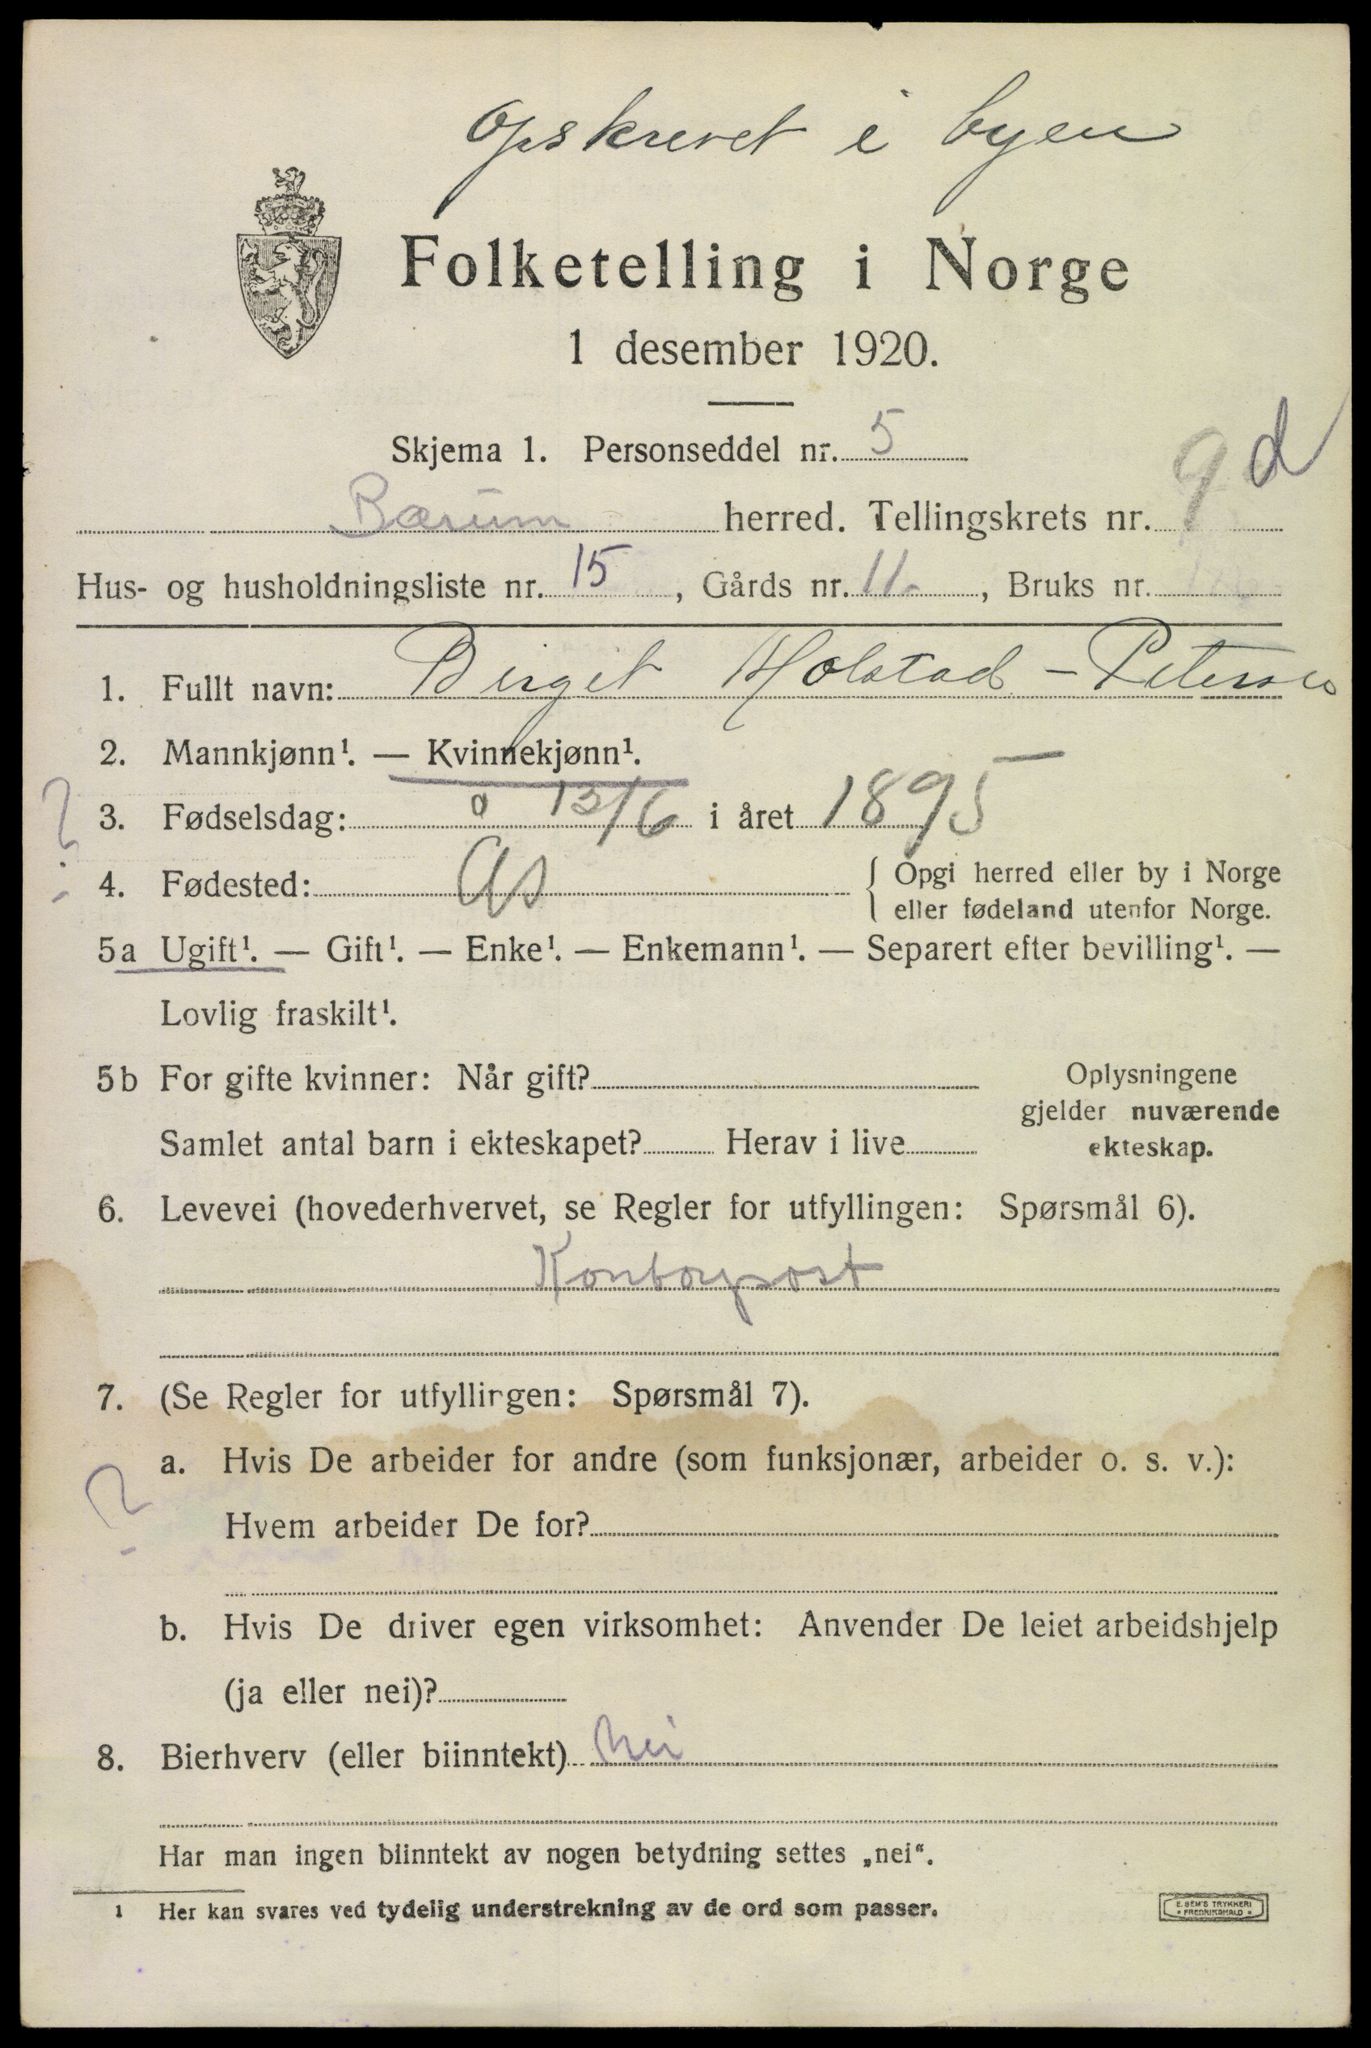 Opskrevet i byen
Folketelling i Norge
1 desember 1920.
Skjema 1. Personseddel nr. 5
Bærum herred. Tellingskrets nr. 9 d
Hus- og husholdningsliste nr. 15, Gårds nr. 11, Bruks nr.
1. Fullt navn: Birget Holstad - Petersen
2. Mannkjønn¹. — Kvinnekjønn¹.
? 3. Fødselsdag: 13/6 i året 1895
4. Fødested: Ås { Opgi herred eller by i Norge
eller fødeland utenfor Norge.
5a Ugift¹. — Gift¹. — Enke¹. — Enkemann¹. — Separert efter bevilling¹. —
Lovlig fraskilt¹.
5b For gifte kvinner: Når gift? Oplysningene
gjelder nuværende
Samlet antal barn i ekteskapet? Herav i live ekteskap.
6. Levevei (hovederhvervet, se Regler for utfyllingen: Spørsmål 6).
Kontorpost
7. (Se Regler for utfyllingen: Spørsmål 7).
a. Hvis De arbeider for andre (som funksjonær, arbeider o. s. v.):
? Hvem arbeider De for?
b. Hvis De driver egen virksomhet: Anvender De leiet arbeidshjelp
(ja eller nei)?
8. Bierhverv (eller biinntekt) Nei
Har man ingen biinntekt av nogen betydning settes „nei“.
1 Her kan svares ved tydelig understrekning av de ord som passer.
E. SEM'S TRYKKERI
FREDRIKSHALD